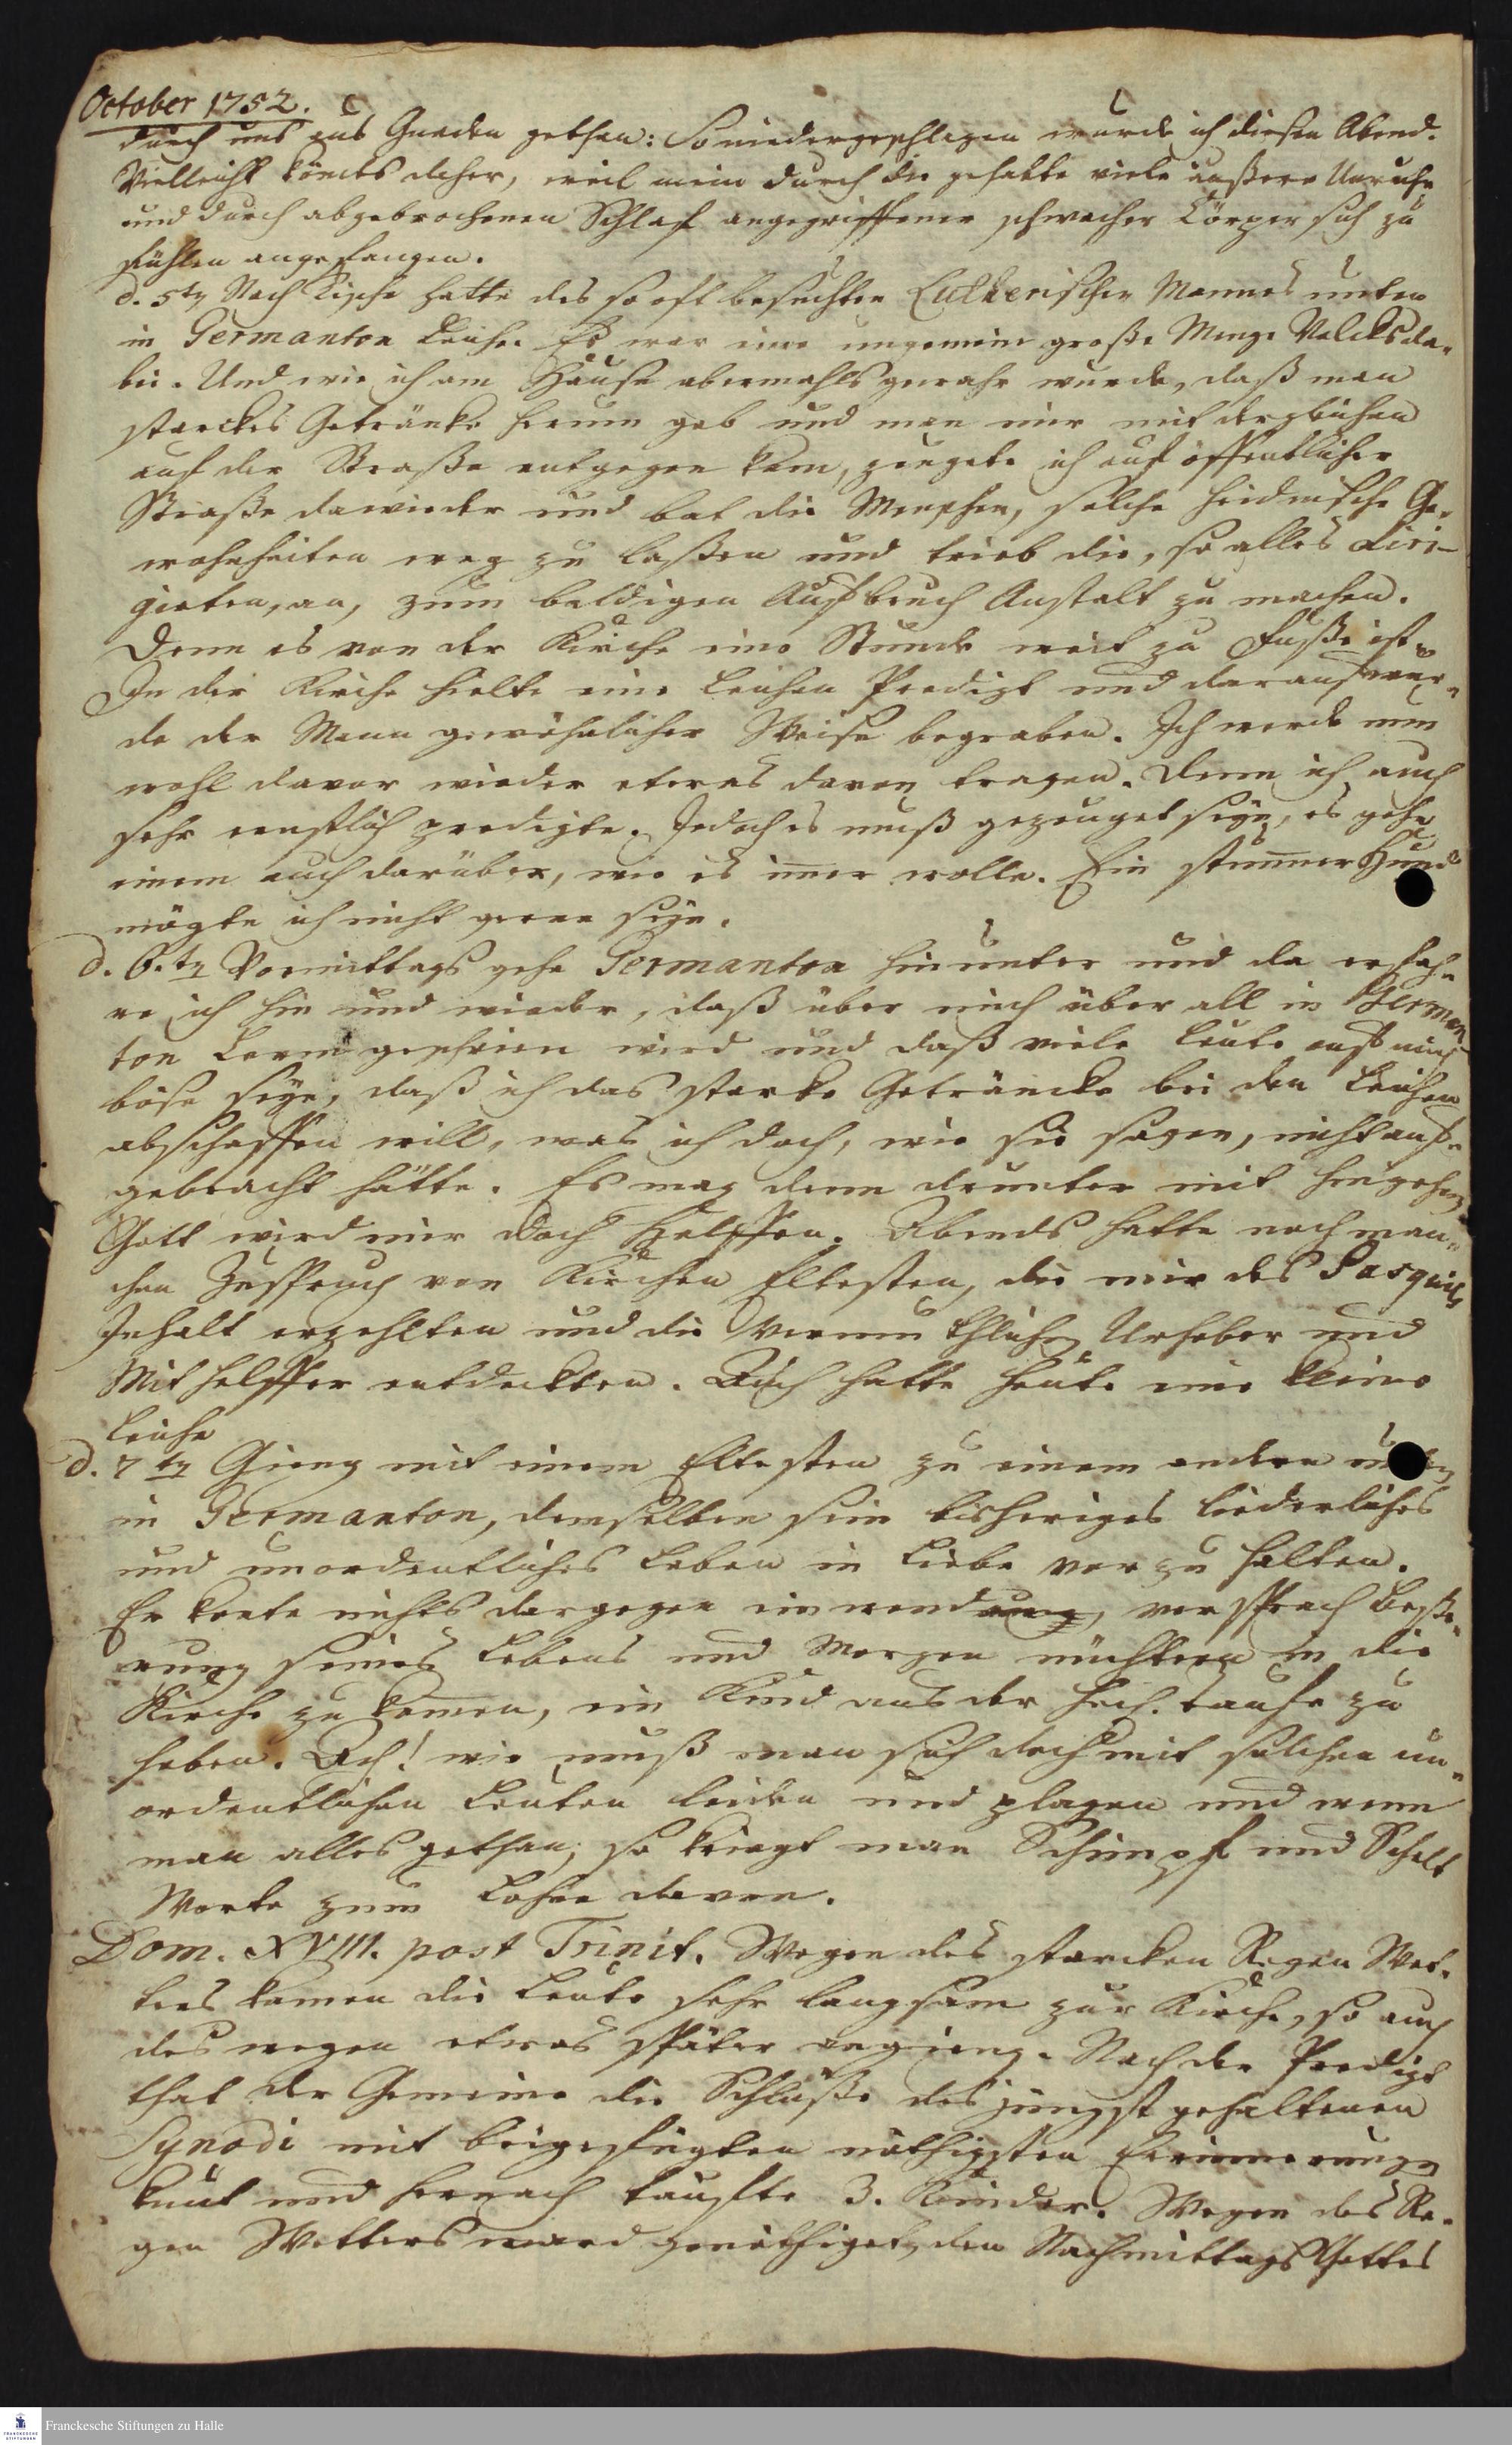 October 1752.
durch uns aus Gnaden gethan: So niedergeschlagen wurde ich diesen Abend.
Vielleicht kömts daher, weil mein durch die gehabte viele äußere Unruhe
und durch abgebrochenen Schlaf angegriffener schwacher Cörper sich zu
fühlen angefangen.
d. 5tn Nach Tische hatte des so oft besuchten Lutherischen Mannes unten
in Germanton Leiche. Es war eine ungemein große Menge Volcks da-
bei. Und wie ich am Hause abermahls gewahr wurde, daß man
starckes Getränke herum gab und man mir mit dergleichen
auf der Straße entgegen kam, zeugete ich auf öffentlicher
Straße dawieder und bat die Menschen, solche heidnische Ge-
wohnheiten weg zu laßen und trieb die, so alles diri-
girten, an, zum baldigen Aufbruch Anstalt zu machen.
Denn es von der Kirche eine Stunde weit zu Fuße ist.
In der Kirche hielte eine Leichen Predigt und darauf wur-
de der Mann gewöhnlicher Weise begraben. Ich werde nun
wohl davor wieder etwas davon tragen. Denn ich auch
sehr ernstlich predigte. Jedoch es muß gezeuget seyn, es gehe
einem auch darüber, wie es imer wolle. Ein stummer Hund
mögte ich nicht gerne seyn.
d. 6.tn Vormittags gehe Germanton hinunter und da erfah-
re ich hin und wieder, daß über mich über all in German
ton Lerm geschrien wird und daß viele Leute auf mich
böse seyn, daß ich das starke Geträncke bei den Leichen
abschaffen will, was ich doch, wie sie sagen, nicht auf-
gebracht hätte. Es mag denn drunter mit hingehen
Gott wird mir doch helffen. Abends hatte noch man-
chen Zuspruch von Kirchen Eltesten, die mir des Pasquils
Inhalt erzehlten und die vermuthlichen Urheber und
Mithelffer entdeckten. Auch hatte heute eine kleine
Leiche
d. 7 tn Gieng mit einem Eltesten zu einem andern
in Germanton, demselben sein bisheriges liederliches
und unordentliches Leben in Liebe vor zu halten.
Er konte nichts dargegen einwenden, versprach Beße-
rung seines Lebens und Morgen nüchtern in die
Kirche zu komen, ein Kind aus der heil. Taufe zu
heben. Ach! wie muß man sich doch mit solchen un-
ordentlichen Leuten leiden und plagen und wenn
man alles gethan, so kriegt man Schimpf und Schelt
Worte zum Lohne davon.
Dom. XVIII. post Trinit. Wegen des starcken Regen Wet-
ters kamen die Leute sehr langsam zur Kirche, so auch
des wegen etwas später angieng. Nach der Predigt
that der Gemeine die Schlüße des jüngst gehaltenen
Synodi mit beigefügten nöthigsten Erinnerungen
kund und hernach taufte 3. Kinder. Wegen des Re-
gen Wetters ward genöthiget, den Nachmittags Gottes
Franckesche Stiftungen zu Halle